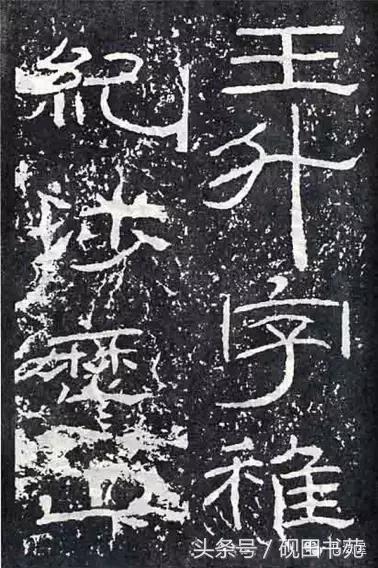 王升字稚
紀涉歷山
头条号 / 砚田书苑